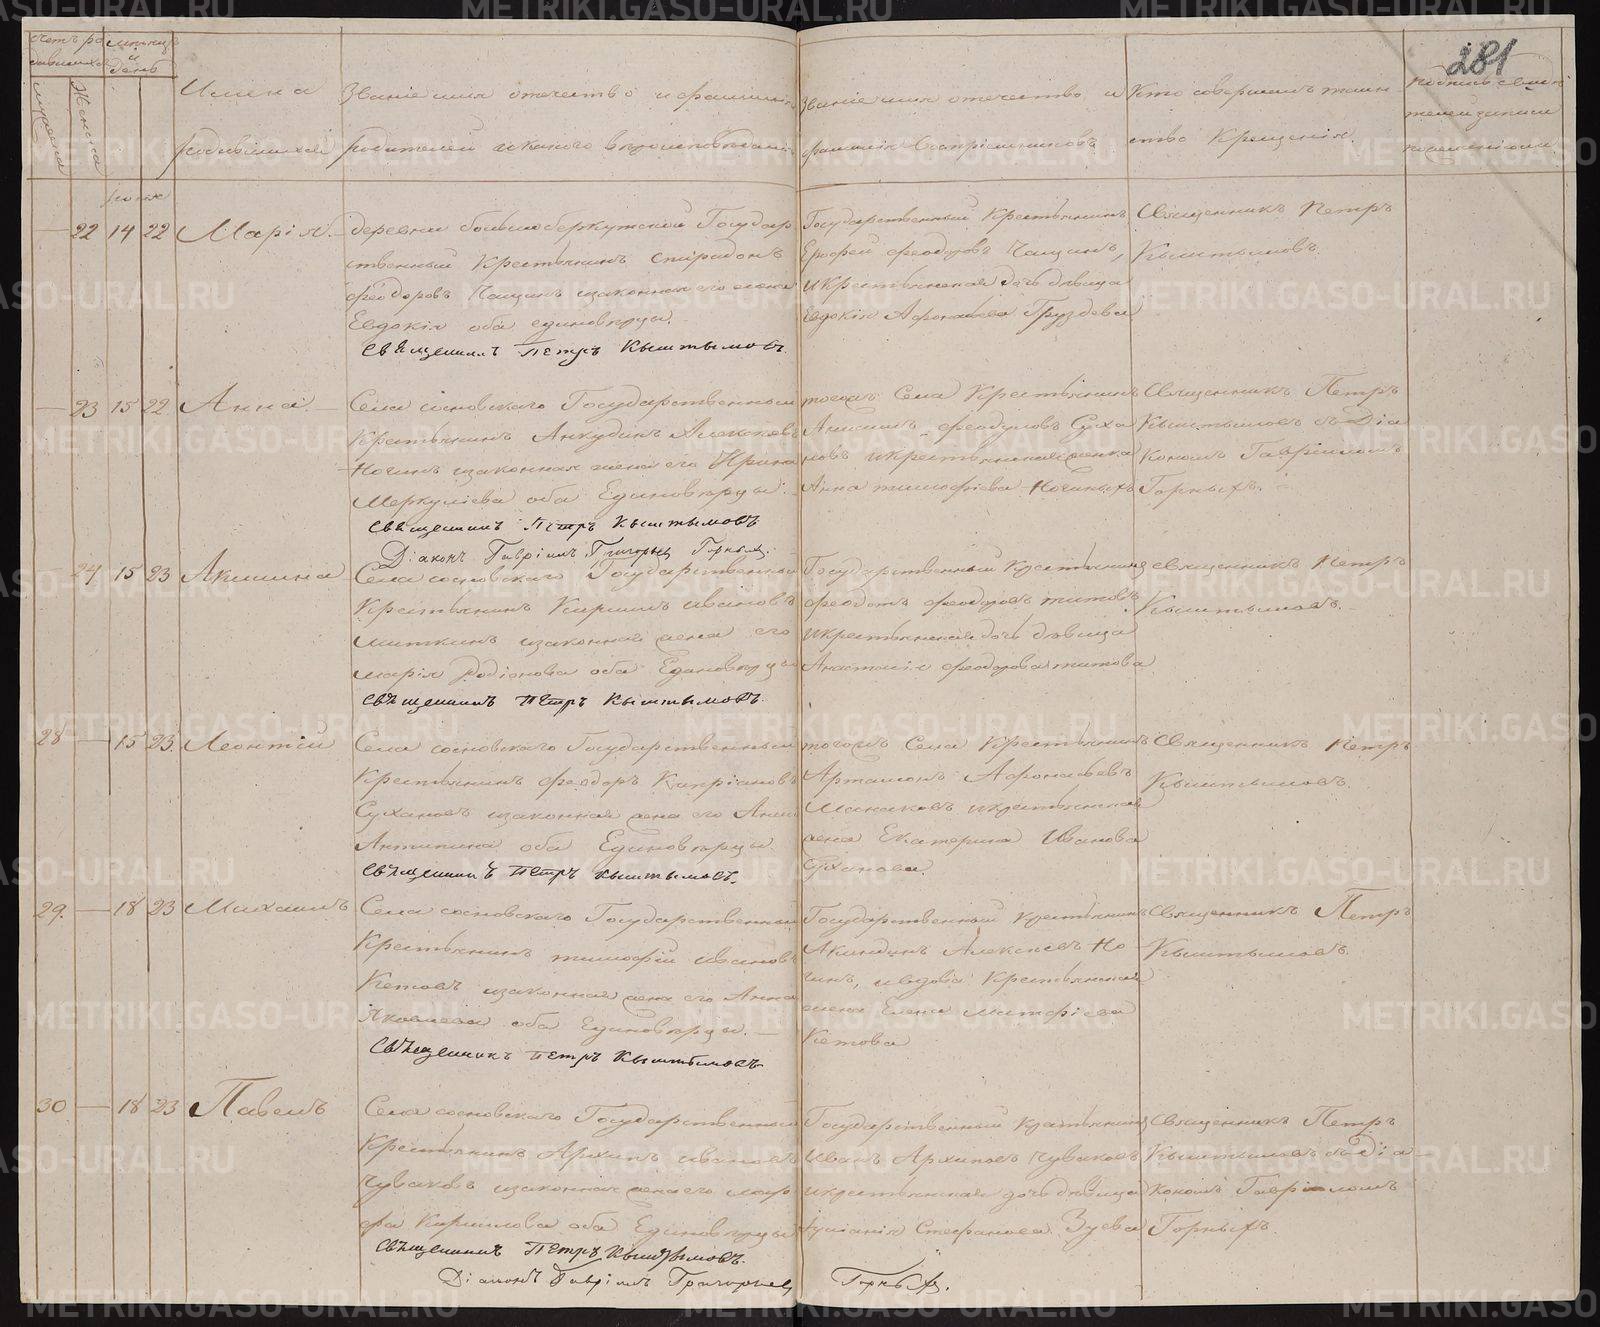 281
счетъ ро
дившихся
мужеска
женска
мѣсяцъ
и
день
Имена
родившихся
Званіе имя отечество и фамилія
родителей и какого вѣроисповѣданія
Званіе имя отечество и
фамилія Воспріемниковъ
Кто совершалъ таин
ство Крещенія.
22 14 22 Марія.
деревни Государ
ственный Крестьянинъ Спиридонъ
Феодоровъ Чащинъ изаконная его жена
Евдокія оба единовѣрцы.
Священникъ Петръ Кыштымовъ.
Государственный Крестьянинъ
Ерофей Чащинъ,
икрестьянская дочь дѣвица
Евдокія Афонасьева Груздева
Священникъ Петръ
Кыштымовъ.
23 15 22 Анна.
Села сосновскаго Государственный
Крестьянинъ Анкудинъ Алексѣевъ
Ногинъ изаконная жена его Ирина
Меркуліева оба Единовѣрцы.
Священникъ Петръ Кыштымовъ
Діаконъ Гавріилъ Григорьев Горныхъ.
тогожъ Села Крестьянинъ
Анисимъ Суха
новъ икрестьянская женка
Анна тимофѣева Ногиныхъ
Священникъ Петръ
Кыштымовъ съ Діа
кономъ Гавріиломъ
Горныхъ.
24 15 23 Акилина
Села сосновскаго Государственный
Крестьянинъ Кирилъ Ивановъ
Миткинъ изаконная жена его
марія Родіонова оба Единовѣрцы
Священникъ Петръ Кыштымовъ.
Государственный крестьянинъ
феодотъ феодоровъ титовъ
икрестьянская дочь дѣвица
Анастасія феодорова титова
священникъ Петръ
Кыштымовъ.
28 15 23. Леонтій
Села сосновскаго Государственный
Крестьянинъ феодоръ Кипріановъ
Сухановъ изаконная жена его Анна
Антипина оба Единовѣрцы.
Священникъ Петръ Кыштымовъ.
тогожъ Села Крестьянинъ
Артамонъ Афонасьевъ
Манаковъ икрестьянская
жена Екатерина Иванова
Суханова.
Священникъ Петръ
Кыштымовъ.
29. 18 23 Михаилъ
Села сосновскаго Государственный
Крестьянинъ тимофѣй Ивановъ
Кетовъ изаконная жена его Анна
Яковлева оба Единовѣрцы.
Священникъ Петръ Кыштымовъ
Государственный крестьянинъ
Акиндинъ Алексѣевъ Но
гинъ, ивдова Крестьянская
жена Елена Митрфіева
Кетова
Священникъ Петръ
Кыштымовъ.
30 18 23 Павелъ
Села сосновскаго Государственный
Крестьянинъ Архипъ Ивановъ
Чуваковъ изаконная жена его мар
фа Кирилова оба Единовѣрцы
Священникъ Петръ Кыштымовъ.
Діаконъ Гавріилъ Григорьев Горныхъ.
Государственный крестьянинъ
Иванъ Архиповъ Чуваковъ
икрестьянская дочь дѣвица
Іуліанія Стефанова Зуева
Священникъ Петръ
Кыштымовъ съ Діа
кономъ Гавріиломъ
Горныхъ.
METRIKI.GASO-URAL.RU